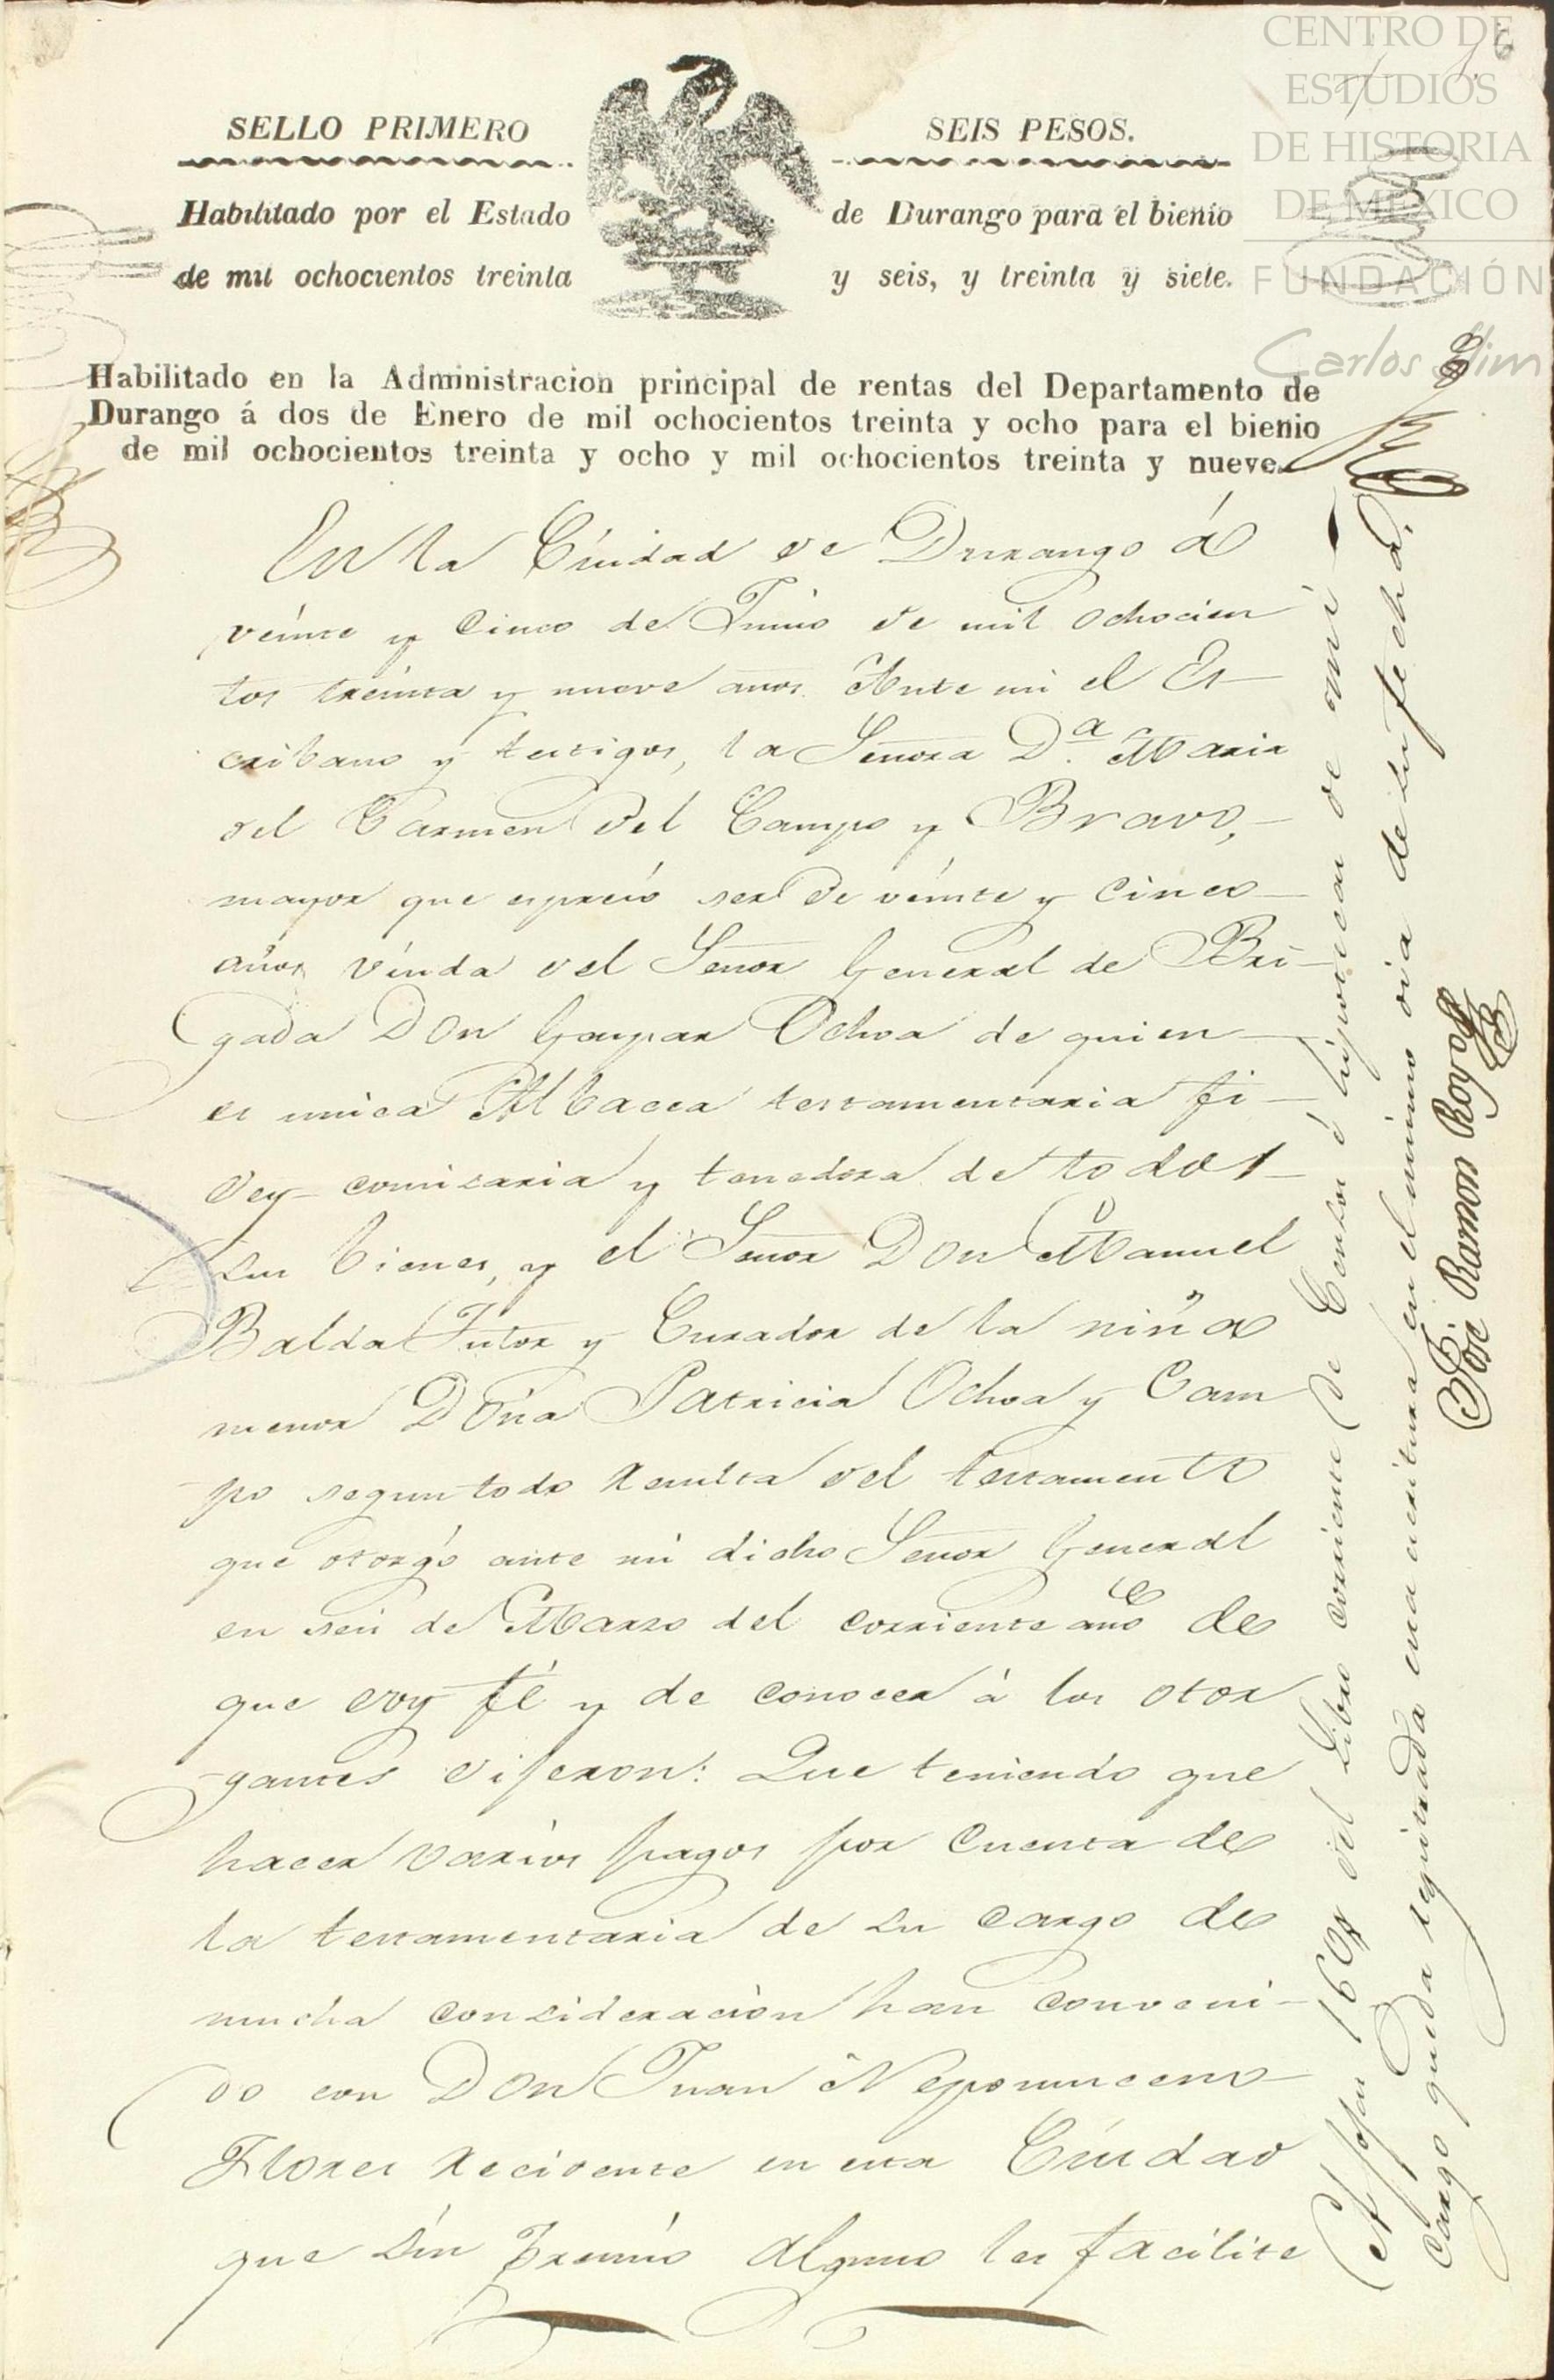 CENTRO DE
ESTUDIOS
DE HISTORIA
DE MÉXICO
FUNDACIÓN
Carlos Slim
SELLO PRIMERO
SEIS PESOS.
Habilitado por el Estado
de Durango para el bienio
de mil ochocientos treinta
y seis, y treinta y siete.
Habilitado en la Administracion principal de rentas del Departamento de
Durango á dos de Enero de mil ochocientos treinta y ocho para el bienio
de mil ochocientos treinta y ocho y mil ochocientos treinta y nueve.
En la Ciudad de Durango á
veinte y cinco de Junio de mil ochocien
tos treinta y nueve años. Ante mi el Es-
cribano y testigos, la Señora D.ª Maria
del Carmen del Campo y Bravo,
mayor que espresó ser de veinte y cinco
años viuda del Señor General de Bri-
gada Don Gaspar Ochoa de quien
es unica Albacea testamentaria fi-
dey-comisaria y tenedora de todos
sus bienes, y el Señor Don Manuel
Balda Tutor y Curador de la niña
menor Doña Patricia Ochoa y Cam
po segun todo resulta del testamento
que otorgó ante mi dicho Señor General
en seis de Marzo del corriente año de
que doy fé y de conocer á los otor
gantes dijeron: Que teniendo que
hacer varios pagos por cuenta de
la testamentaria de su cargo de
mucha consideracion han conveni-
do con Don Juan Nepomuceno
Flores recidente en esta Ciudad
que sin premio alguno les facilite
A fojas 160 del Libro corriente de Censos é hipotecas de mi
cargo queda registrada esta escritura en el mismo dia de su fecha.
José Ramon Royo